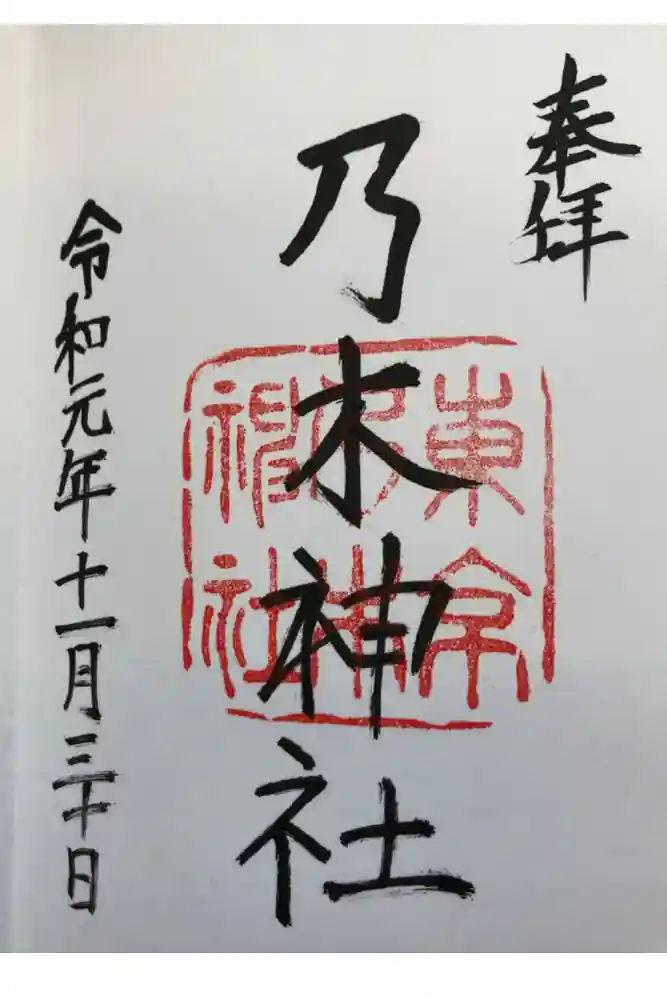 奉拝
乃木神社
東京乃木神社
令和元年十一月三十日